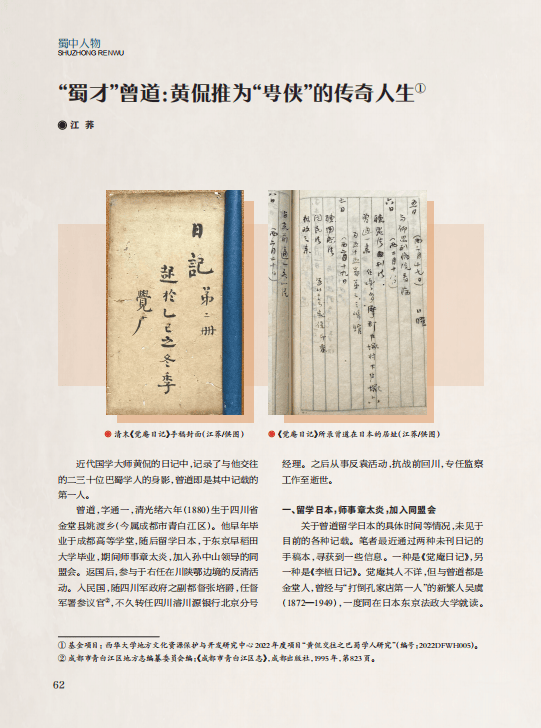 蜀中人物
SHUZHONG RENWU
“蜀才”曾道：黄侃推为“甹侠”的传奇人生①
◉ 江 荞
日記 第二册
起於乙巳之冬季
覺广
五日
六日
七日
● 清末《觉庵日记》手稿封面（江荞/供图）
● 《觉庵日记》所录曾道在日本的居址（江荞/供图）
近代国学大师黄侃的日记中，记录了与他交往
的二三十位巴蜀学人的身影，曾道即是其中记载的
第一人。
曾道，字通一，清光绪六年（1880）生于四川省
金堂县姚渡乡（今属成都市青白江区）。他早年毕
业于成都高等学堂，随后留学日本，于东京早稻田
大学毕业，期间师事章太炎，加入孙中山领导的同
盟会。返国后，参与于右任在川陕鄂边境的反清活
动。入民国，随四川军政府之副都督张培爵，任督
军署参议官②，不久转任四川濬川源银行北京分号
经理。之后从事反袁活动，抗战前回川，专任监察
工作至逝世。
一、留学日本，师事章太炎，加入同盟会
关于曾道留学日本的具体时间等情况，未见于
目前的各种记载。笔者最近通过两种未刊日记的
手稿本，寻获到一些信息。一种是《觉庵日记》，另
一种是《李植日记》。觉庵其人不详，但与曾道都是
金堂人，曾经与“打倒孔家店第一人”的新繁人吴虞
（1872—1949），一度同在日本东京法政大学就读。
① 基金项目：西华大学地方文化资源保护与开发研究中心2022年度项目“黄侃交往之巴蜀学人研究”（编号：2022DFWH005）。
② 成都市青白江区地方志编纂委员会编：《成都市青白江区志》，成都出版社，1995年，第823页。
62